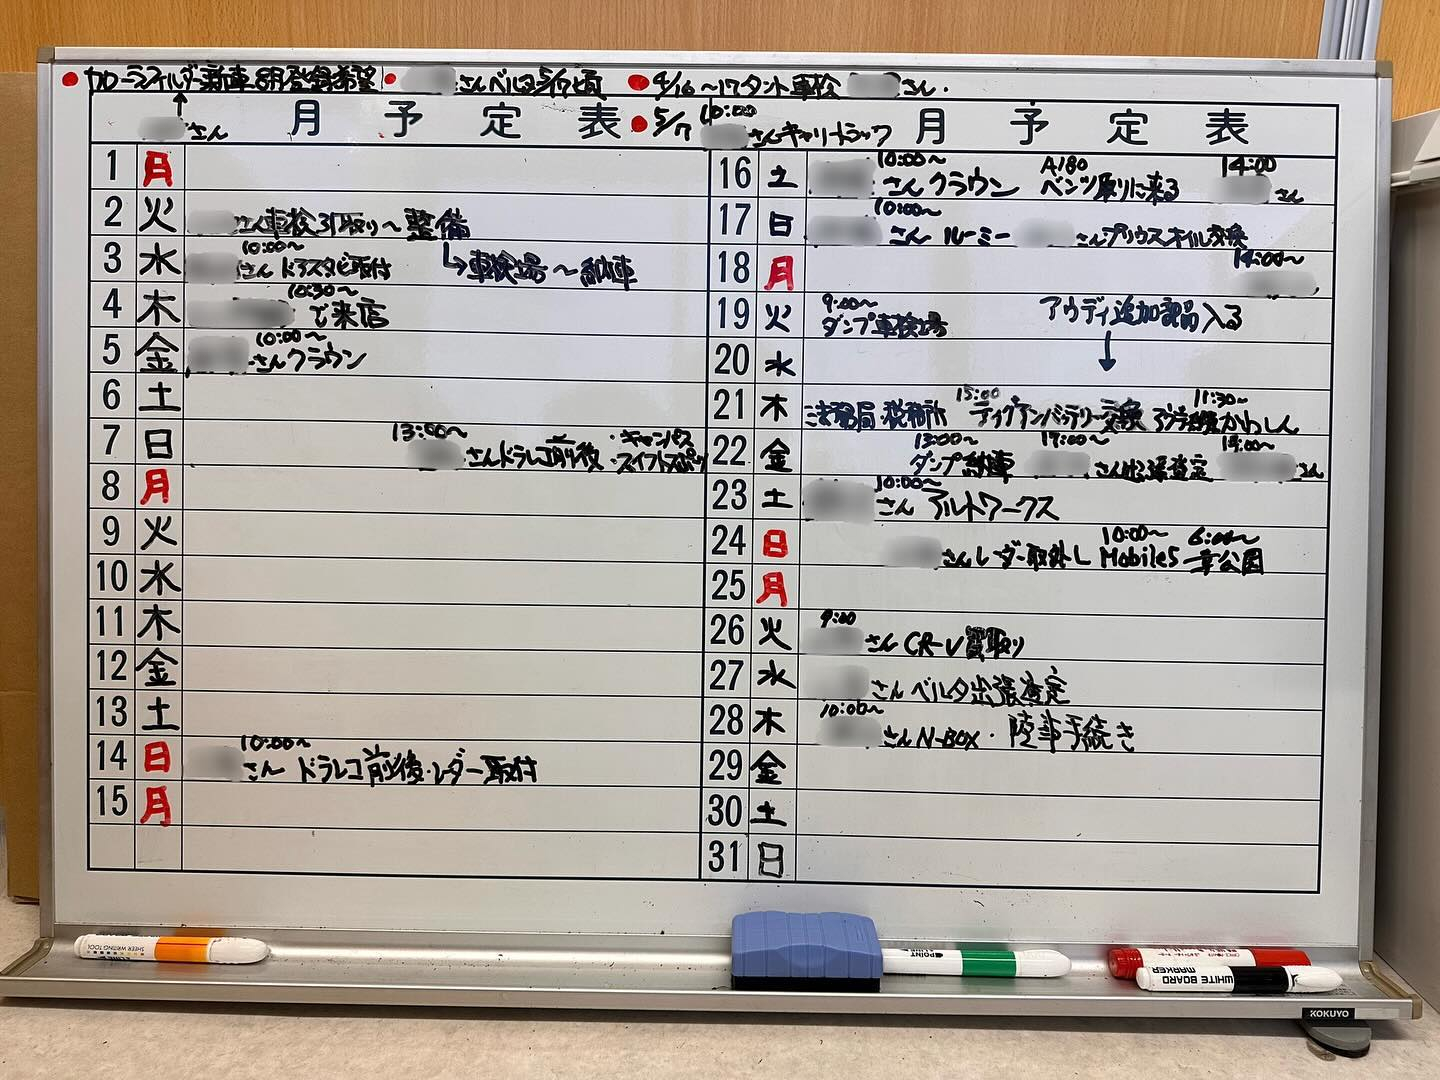 カローラフィルダー新車8月登録希望
さんベルタ5/17頃
4/16〜17タント車検 さん.
さん
月 予 定 表
5/7 10:00
さんキャリートラック
月 予 定 表
1 月
2 火 さん車検引取り〜整備
3 水 10:00〜 さんドアスタビ取付 →車検場〜納車
4 木 10:30〜 で来店
5 金 10:00〜 さんクラウン
6 土
7 日 13:00〜 さんドラレコ前後 ・キャンバス ・スイフトスポーツ
8 月
9 火
10 水
11 木
12 金
13 土
14 日 10:00〜 さん ドラレコ前後・レーダー取付
15 月
16 土 10:00〜 さん クラウン A180 ベンツ取りに来る 14:00 さん
17 日 10:00〜 さん ルーミー さんプリウスオイル交換
18 月 14:00〜
19 火 9:00〜 ダンプ車検場 アウディ追加部品入る
20 水 ↓
21 木 法務局・税務所 15:00 ティグアンバッテリー交換 11:30〜
22 金 13:00〜 ダンプ納車 さん出張査定 さん
23 土 10:00〜 さん アルトワークス
24 日 さんレーダー取外し 10:00〜 Mobile5 6:00〜 幸公園
25 月
26 火 9:00 さん CR-V買取り
27 水 さん ベルタ出張査定
28 木 10:00〜 さん N-BOX・陸事手続き
29 金
30 土
31 日
SHEER WRITING TOOL
POINT
WHITE BOARD
MARKER
KOKUYO